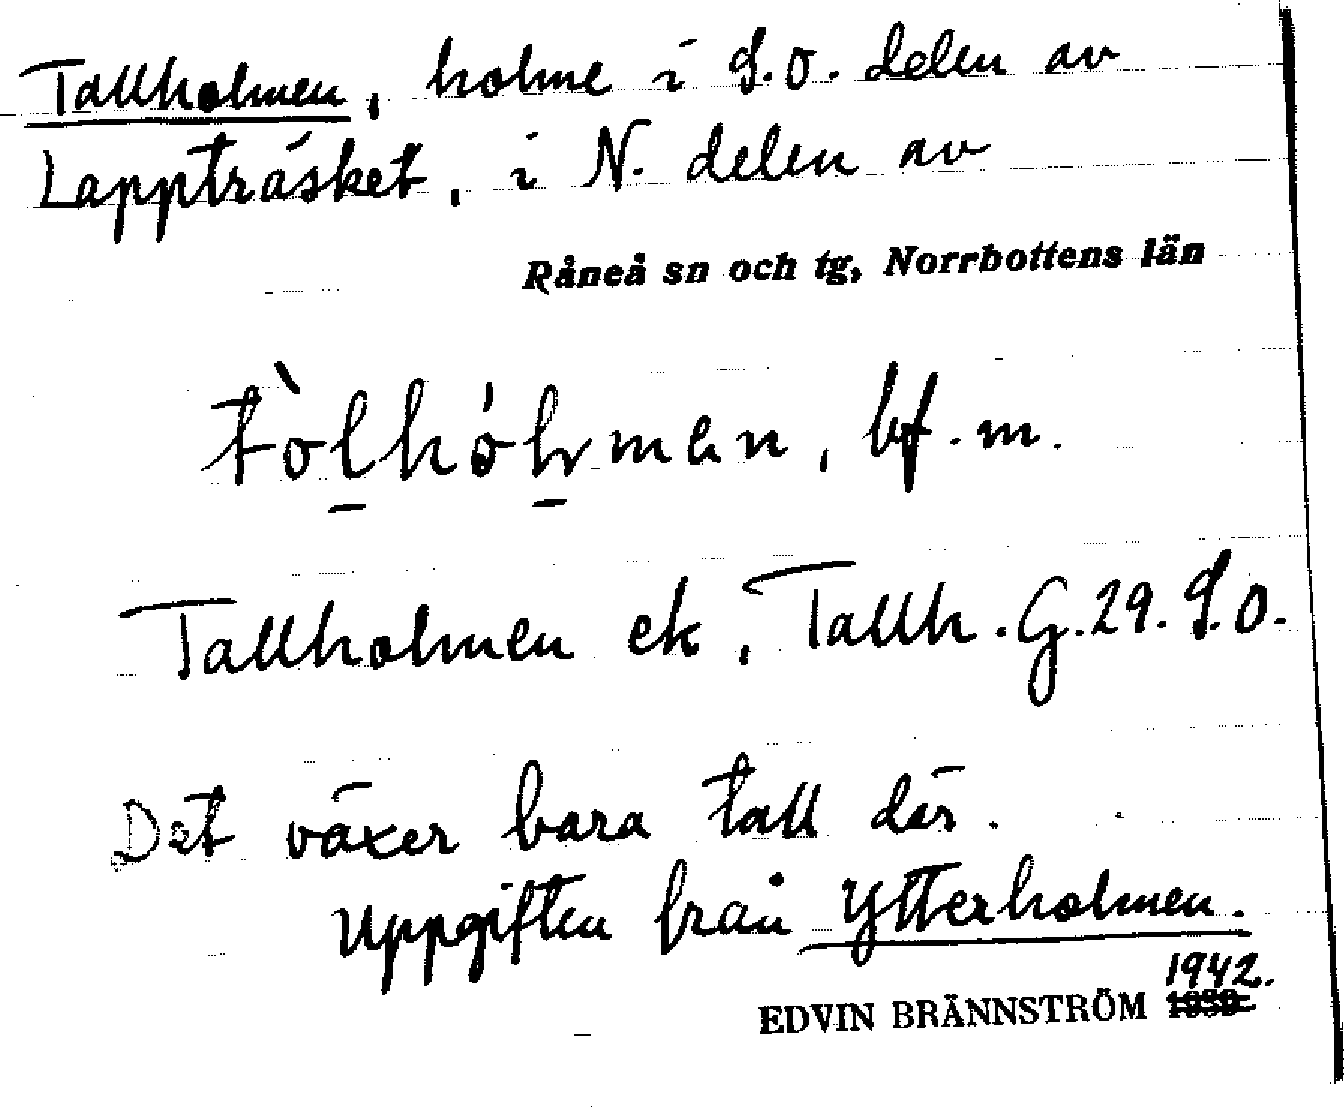 Tallholmen, holme i S.O. delen av
Lappträsket, i N. delen av
Råneå sn och tg, Norrbottens län
bf. m.
Tallholmen ek, Tallh. G.29. S.O.
Det växer bara tall där.
Uppgiften från Ytterholmen.
1942.
EDVIN BRÄNNSTRÖM 1939